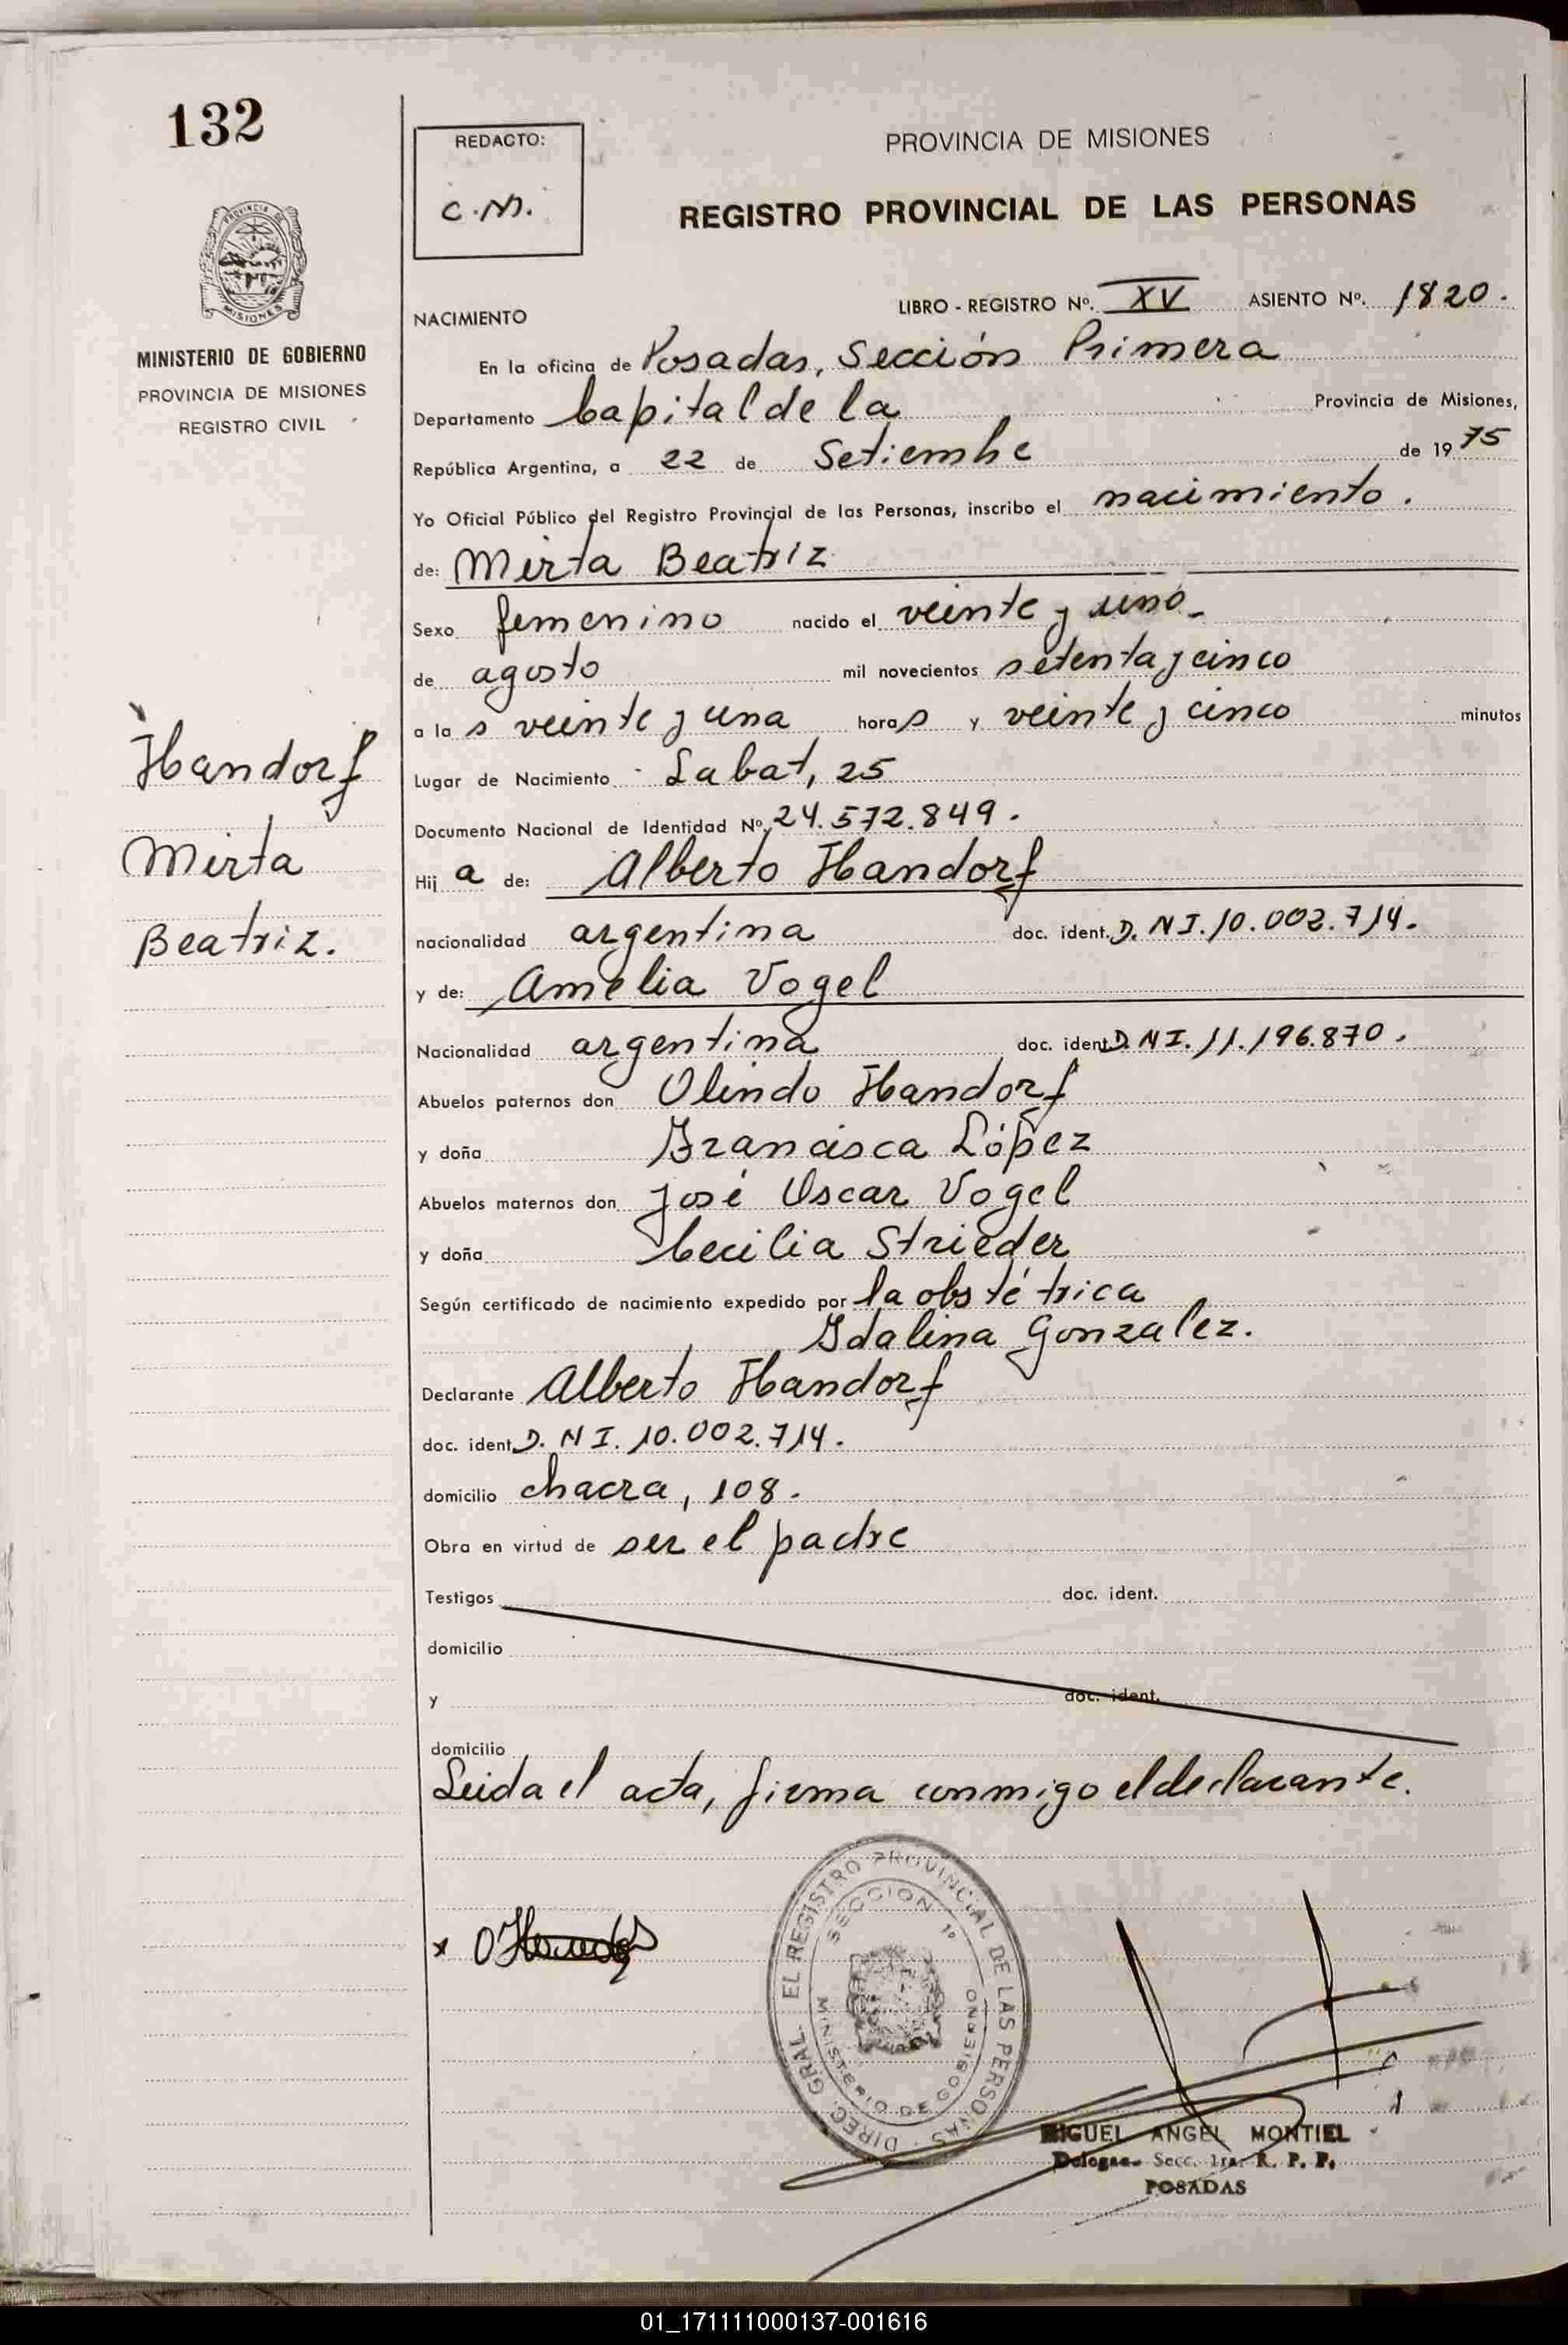 132
REDACTO:
C.M.
PROVINCIA DE MISIONES
REGISTRO PROVINCIAL DE LAS PERSONAS
PROVINCIA DE
MISIONES
MINISTERIO DE GOBIERNO
PROVINCIA DE MISIONES
REGISTRO CIVIL
NACIMIENTO
LIBRO - REGISTRO Nº. XV ASIENTO Nº. 1820.
En la oficina de Posadas, Sección Primera
Departamento Capital de la Provincia de Misiones,
República Argentina, a 22 de Setiembre de 1975
Yo Oficial Público del Registro Provincial de las Personas, inscribo el nacimiento.
de: Mirta Beatriz
Sexo femenino nacido el veinte y uno
de agosto mil novecientos setenta y cinco
a las veinte y una horas y veinte y cinco minutos
Handorf
Mirta
Beatriz.
Lugar de Nacimiento Labat, 25
Documento Nacional de Identidad Nº. 24.572.849.
Hija de: Alberto Handorf
nacionalidad argentina doc. ident. D.NI.10.002.714.
y de: Amelia Vogel
Nacionalidad argentina doc. ident D.NI.11.196.870.
Abuelos paternos don Olindo Handorf
y doña Francisca López
Abuelos maternos don José Oscar Vogel
y doña Cecilia Strieder
Según certificado de nacimiento expedido por la obstétrica
Idalina Gonzalez.
Declarante Alberto Handorf
doc. ident. D.NI.10.002.714.
domicilio chacra, 108.
Obra en virtud de ser el padre
Testigos doc. ident.
domicilio
y doc. ident.
domicilio
Leida el acta, firma conmigo el declarante.
DIREC. GRAL. EL REGISTRO PROVINCIAL DE LAS PERSONAS
SECCION 1º
MINISTERIO DE GOBIERNO
MIGUEL ANGEL MONTIEL
Secc. 1ra. R. P. P.
POSADAS
01_171111000137-001616